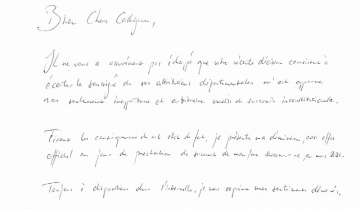 Bien Chers Collègues,
Il ne vous a sûrement pas échappé que votre récente décision consistant à
écarter le soussigné de ses attributions départementales m'est apparue
non seulement inopportune et arbitraire mais de surcroît inconditionnelle.
Tirant les conséquences de cet état de fait, je présente ma démission, avec effet
officiel au jour de prestation de serment de mon/ma successeur-e, en mai 2021.
Toujours à disposition dans l'intervalle, je vous exprime mes sentiments dévoués.